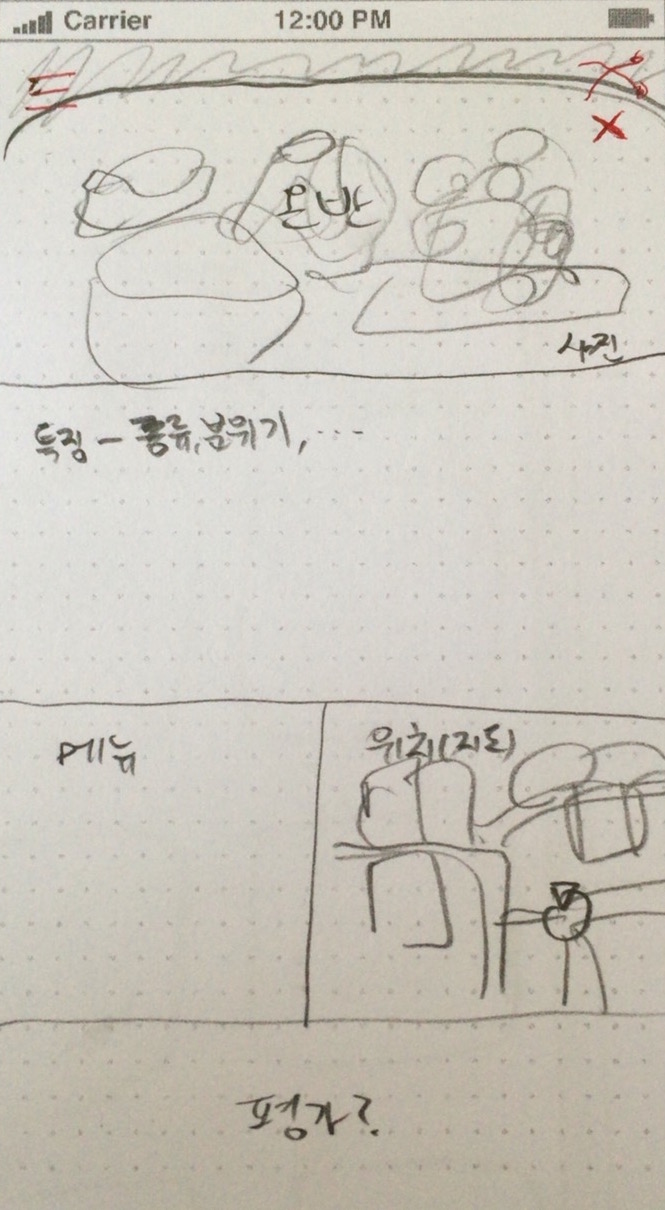 Carrier 12:00 PM
온반
사진
특징 - 종류, 분위기, ...
메뉴
위치(지도)
평가?